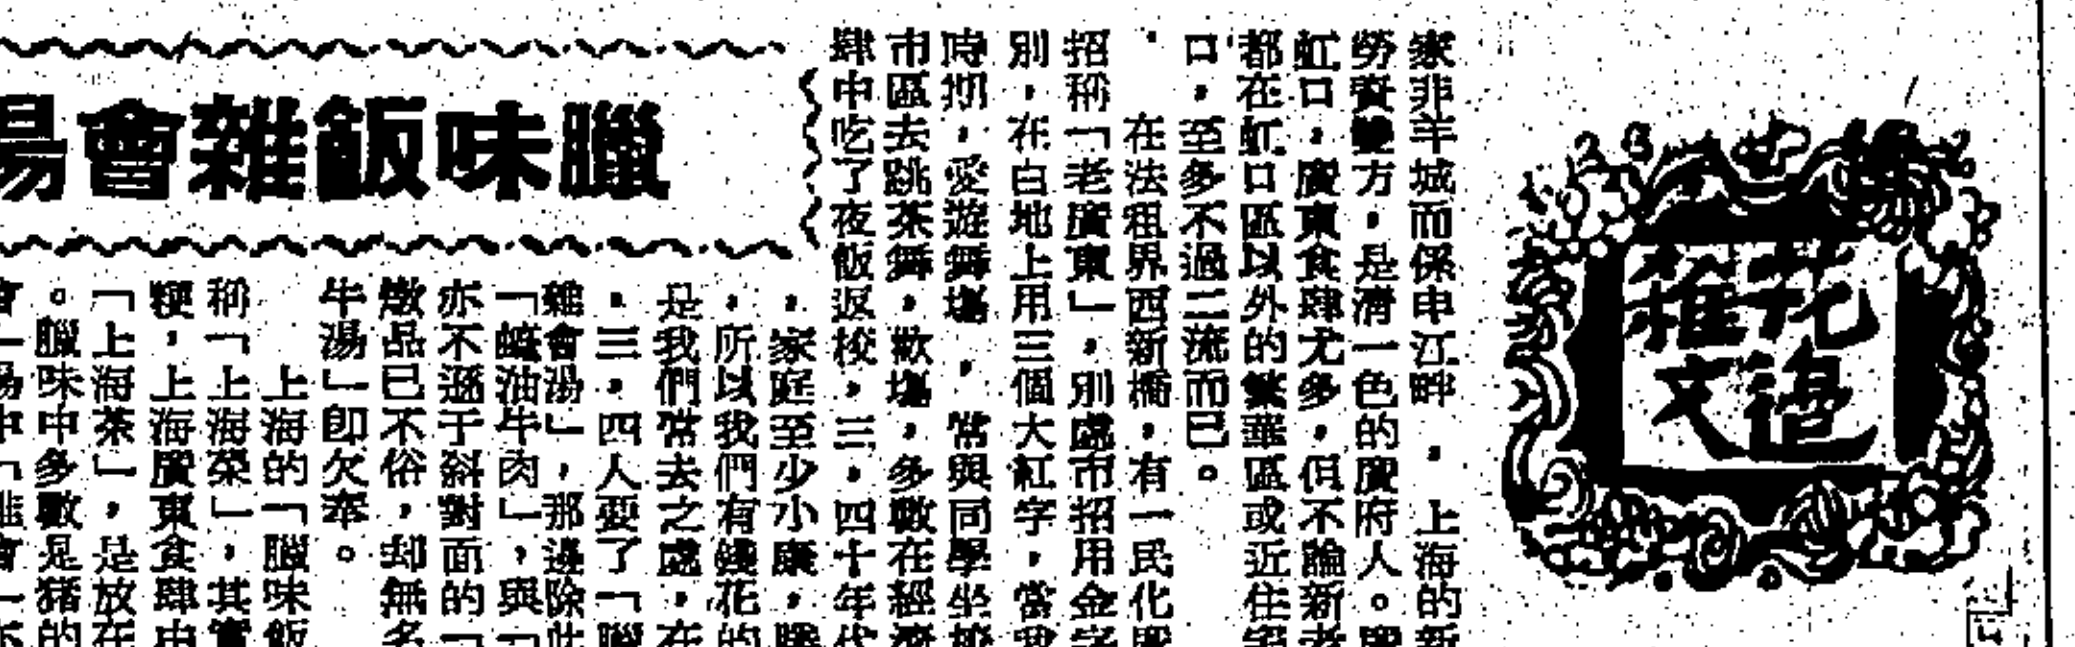 花邊
雜文
臘味飯雜會湯
家非羊城而係申江畔,上海的新
勞資雙方,是清一色的廣府人。
虹口,廣東食肆尤多,但不論新老
都在虹口區以外的繁華區或近住宅
口,至多不過二流而已。
在法租界西新橋,有一民化
招稱「老廣東」,別處市招用金字
別,在白地上用三個大紅字,當我
時期,愛遊舞場,常與同學坐
市區去跳茶舞,散場,多數在經濟
肆中吃了夜飯返校,三,四十年代
,家庭至少小康,
,所以我們有錢花的
是我們常去之處,在
,三,四人要了「臘
雜會湯」,那邊除此
「蠔油牛肉」,與「
亦不遜于斜對面的「
燉品已不俗,却無名
牛湯」即欠奉。
上海的「臘味飯
稱「上海菜」,其實
粳,上海廣東食肆中
「上海茶」,是放在
。臘味中多數是猪的